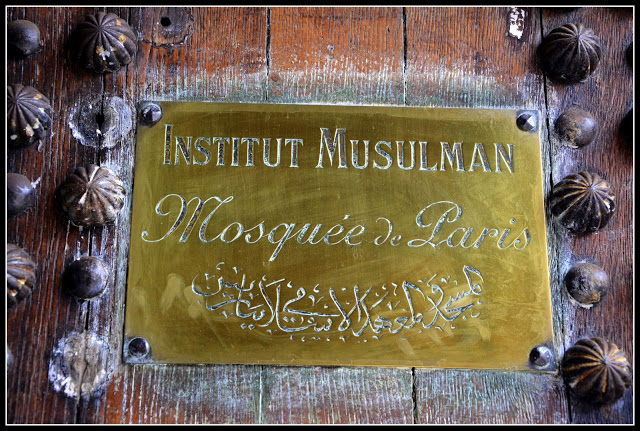 INSTITUT MUSULMAN
Mosquée de Paris
المسجد والمعهد الاسلامي بباريس